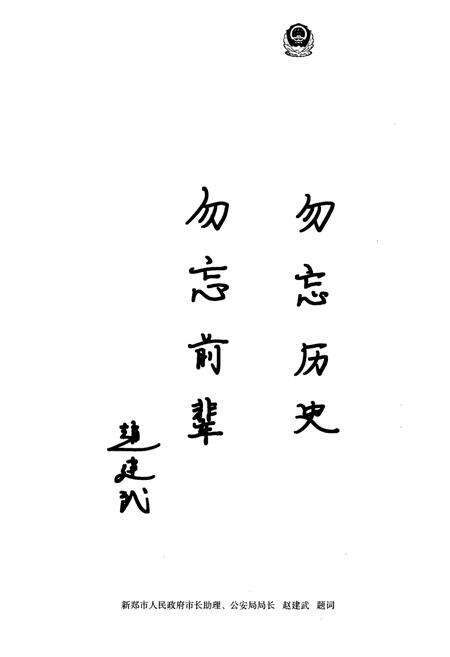 勿忘历史
勿忘前辈
赵建武
新郑市人民政府市长助理、公安局局长 赵建武 题词